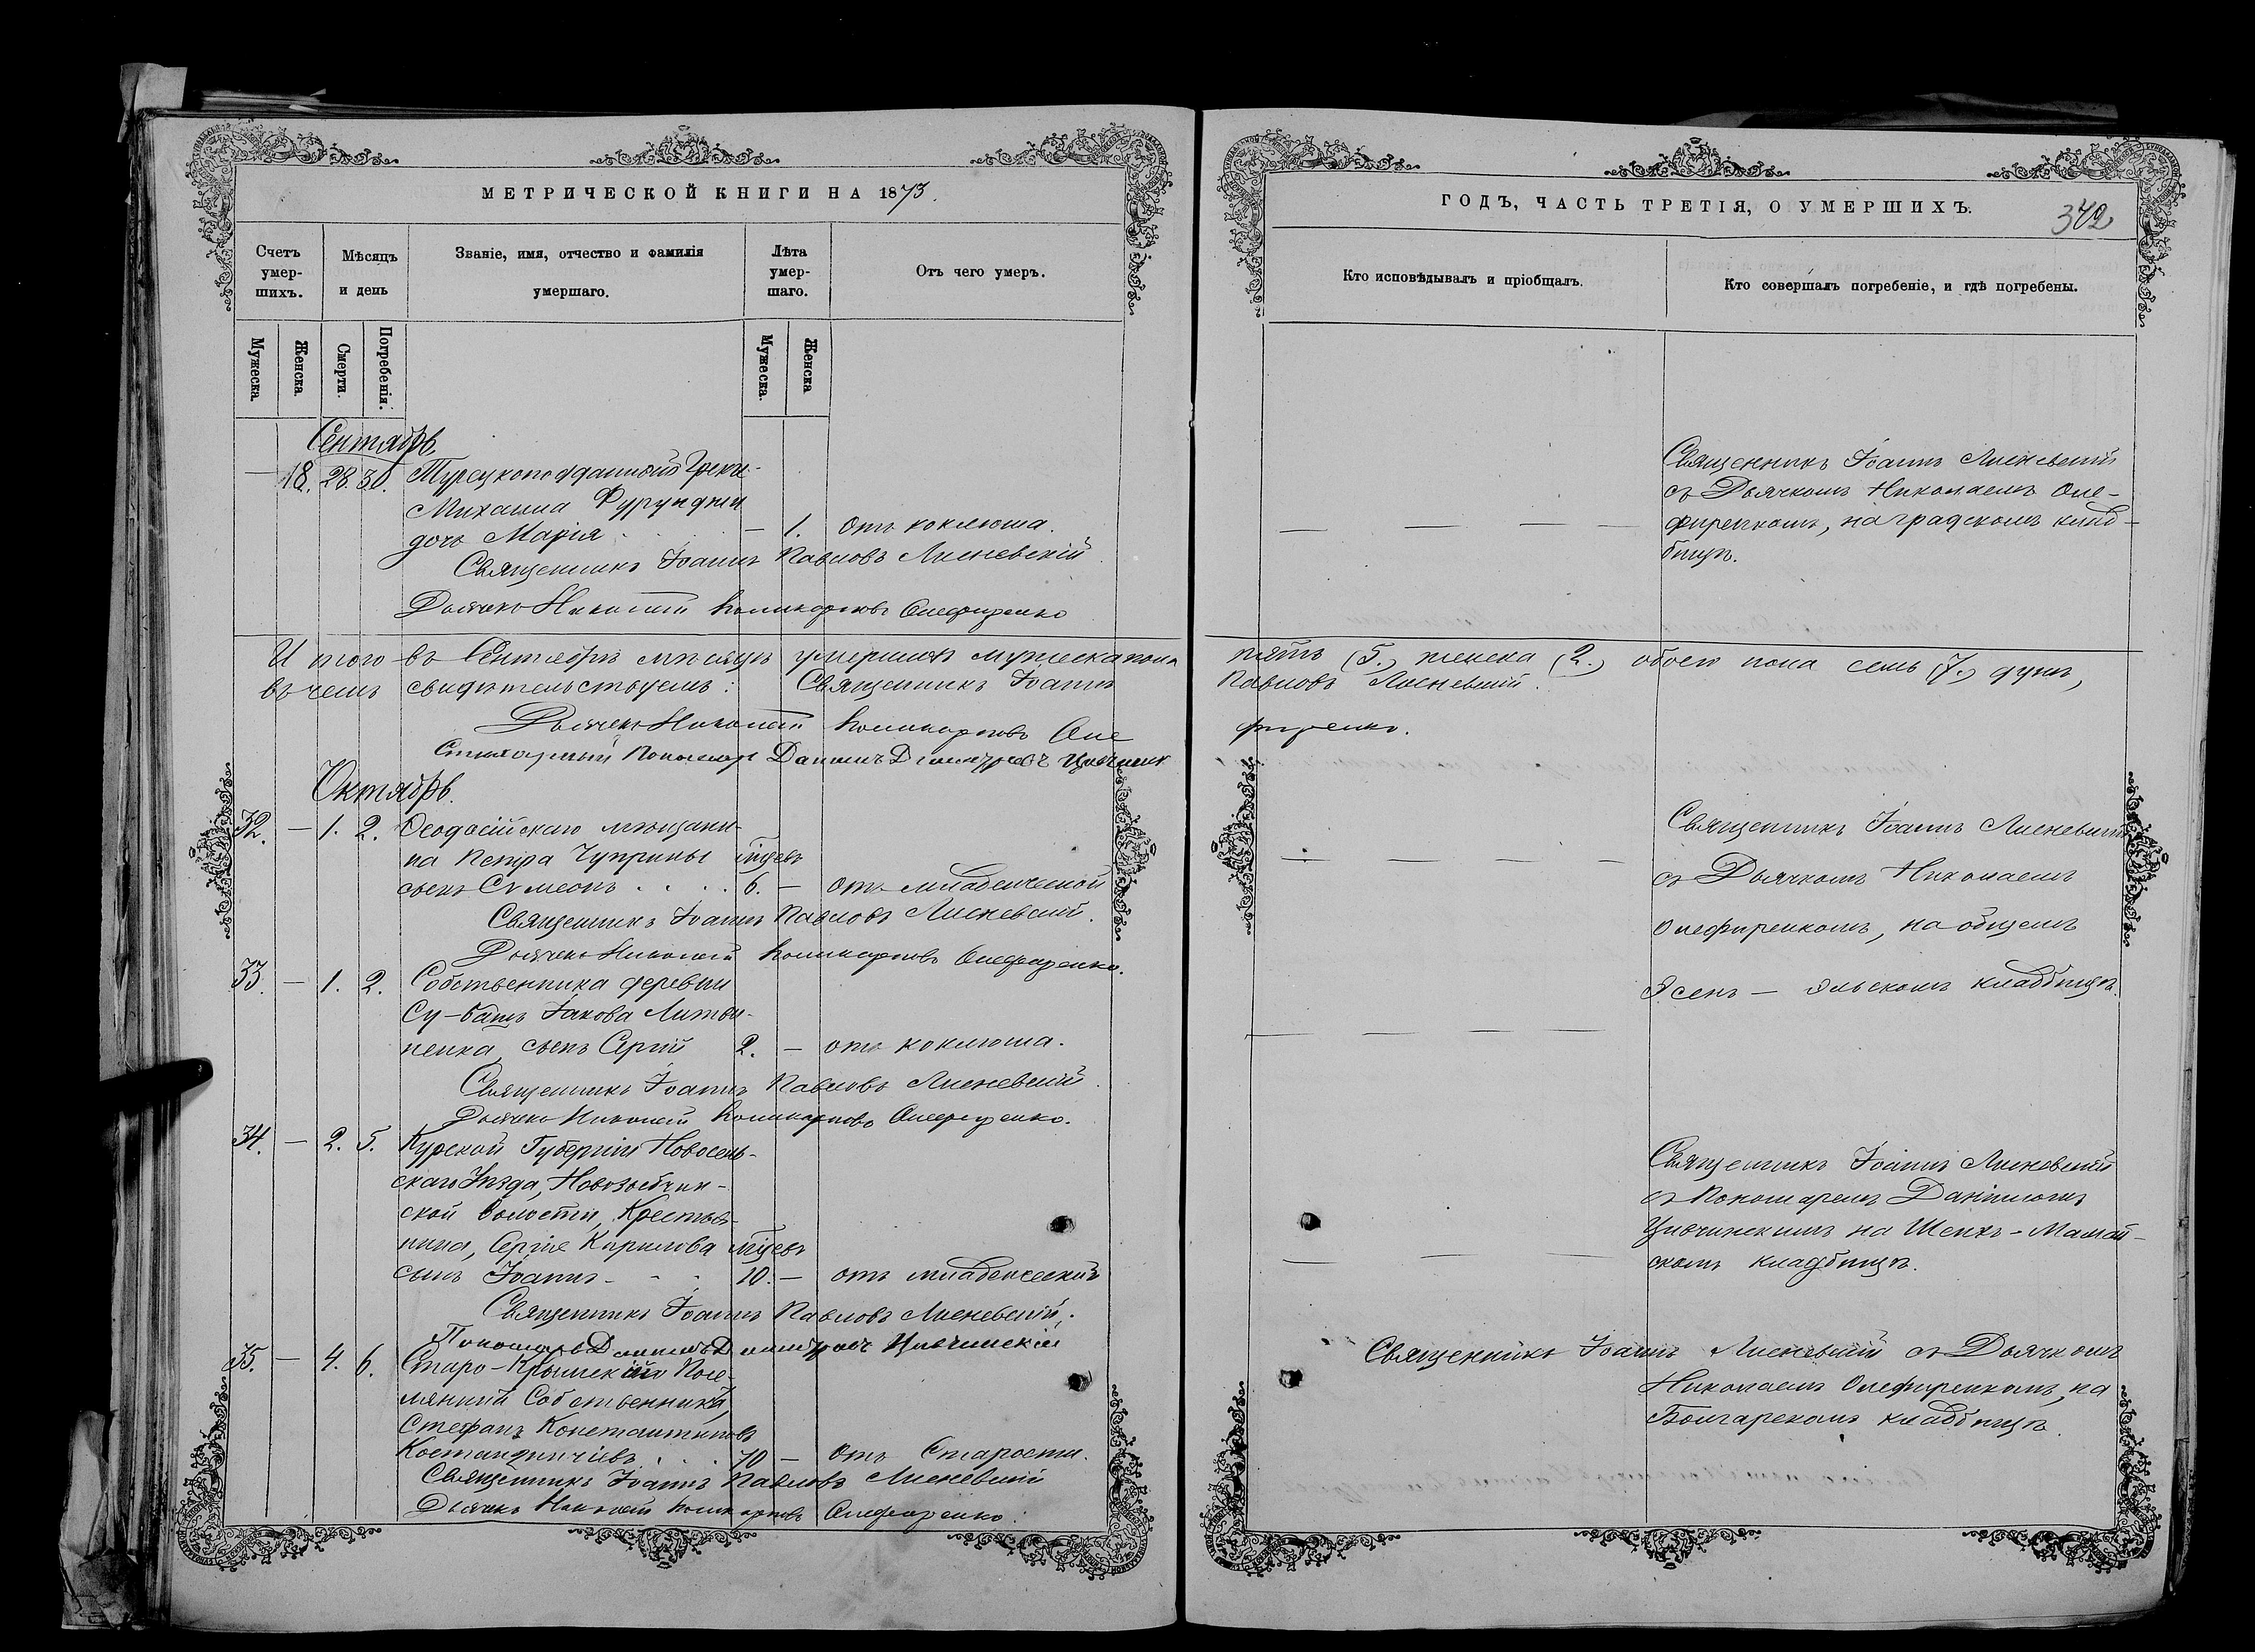 МЕТРИЧЕСКОЙ КНИГИ НА 1873.
Счетъ умер-шихъ.
Мѣсяцъ и день
Званіе, имя, отчество и фамилія умершаго.
Лѣта умер-шаго.
Отъ чего умеръ.
Мужеска.
Женска
Смерти.
Погребенія.
Мужеска.
Женска
Сентябрь
— 18. 28. 30. Турецкоподданнаго Грека
Михаила
дочь Марія — 1. отъ коклюша.
Священникъ Іоаннъ Павловъ Лисневскій
Дьячекъ Николай Поликарповъ Олефиренко
Итого въ Сентябрѣ мѣсяцѣ умершихъ мужеска пола
въ чемъ свидѣтельствуемъ: Священникъ Іоаннъ
Дьячекъ Николай Поликарповъ Оле
Пономарь Даніилъ Димитріевъ
Октябрь.
32. — 1. 2. Ѳеодосійскаго мѣщани-
на Петра Чуприны мѣцевъ
сынъ Сѵмеонъ . . . . 6. — отъ младенческой
Священникъ Іоаннъ Павловъ Лисневскій.
Дьячекъ Николай Поликарповъ Олефиренко.
33. — 1. 2. Собственника деревни
Су-Баша Іакова Литви-
ненка, сынъ Сергій 2. — отъ коклюша.
Священникъ Іоаннъ Павловъ Лисневскій.
Дьячекъ Николай Поликарповъ Олефиренко.
34. — 2. 5. Курской Губерніи Новосель-
скаго Уѣзда,
ской волости, Крестья-
нина, Сергія Кирилова мѣцевъ
сынъ Іоаннъ - - - 10. — отъ младенческой
Священникъ Іоаннъ Павловъ Лисневскій.
Пономарь Даніилъ Димитріевъ Цивчинскій
35. — 4. 6. Старо-Крымскій Посе-
лянинъ Собственникъ,
Стефанъ Константиновъ
70 — отъ Старости.
Священникъ Іоаннъ Павловъ Лисневскій
Дьячекъ Николай Поликарповъ Олефиренко.
ГОДЪ, ЧАСТЬ ТРЕТІЯ, О УМЕРШИХЪ.
342
Кто исповѣдывалъ и пріобщалъ.
Кто совершалъ погребеніе, и гдѣ погребены.
Священникъ Іоаннъ Лисневскій
съ Дьячкомъ Николаемъ Оле-
фиренкомъ, на градскомъ клад-
бищѣ.
пять (5.) женска (2.) обоего пола семь (7.) душъ,
Павловъ Лисневскій.
фиренко.
Священникъ Іоаннъ Лисневскій
съ Дьячкомъ Николаемъ
Олефиренкомъ, на общемъ
кладбищѣ.
Священникъ Іоаннъ Лисневскій
съ Пономаремъ Даніиломъ
Цивчинскимъ на Шейхъ-Мамай-
скомъ кладбищѣ.
Священникъ Іоаннъ Лисневскій съ Дьячкомъ
Николаемъ Олефиренкомъ, на
Болгарскомъ кладбищѣ.